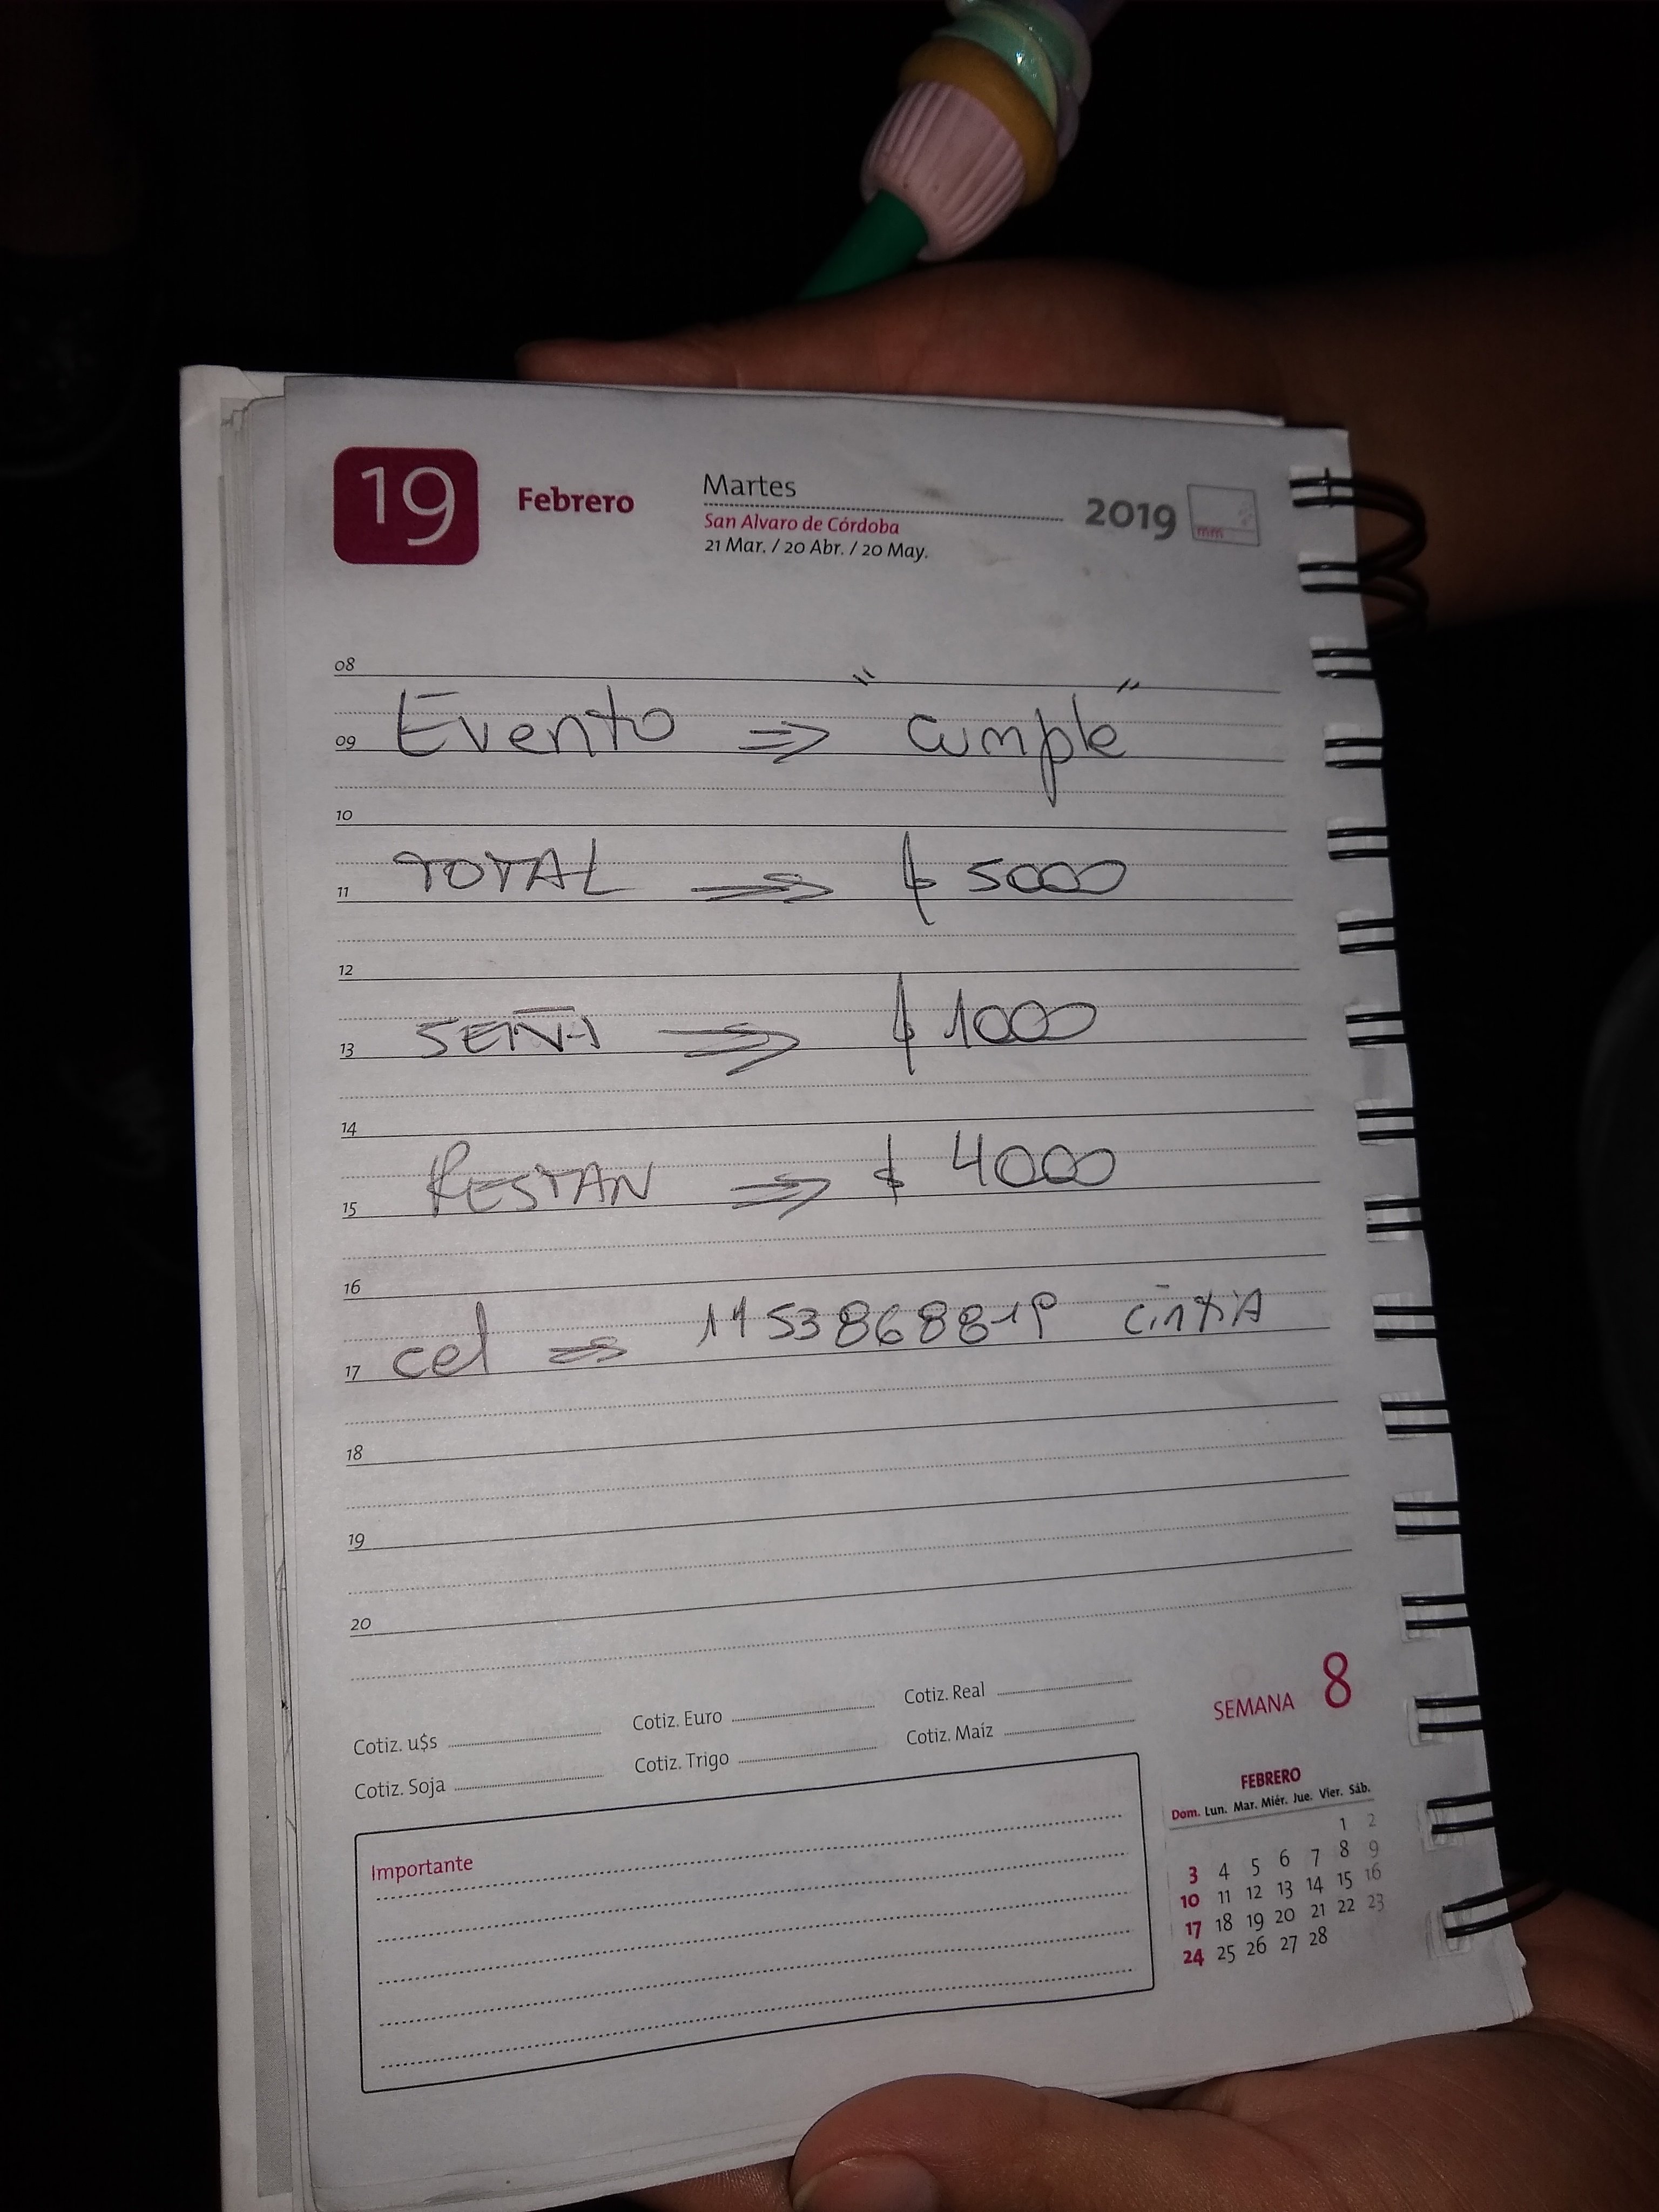 19 Febrero Martes 2019
San Alvaro de Córdoba
21 Mar. / 20 Abr. / 20 May.
mm
08
Evento ⇒ "Cumple"
09
10
TOTAL ⇒ $ 5000
11
12
SEÑA ⇒ $ 1000
13
14
RESTAN ⇒ $ 4000
15
16
cel ⇒ 1153868819 CintiA
17
18
19
20
Cotiz. u$s Cotiz. Euro Cotiz. Real
Cotiz. Soja Cotiz. Trigo Cotiz. Maíz
SEMANA 8
Importante
FEBRERO
Dom. Lun. Mar. Miér. Jue. Vier. Sáb.
1 2
3 4 5 6 7 8 9
10 11 12 13 14 15 16
17 18 19 20 21 22 23
24 25 26 27 28